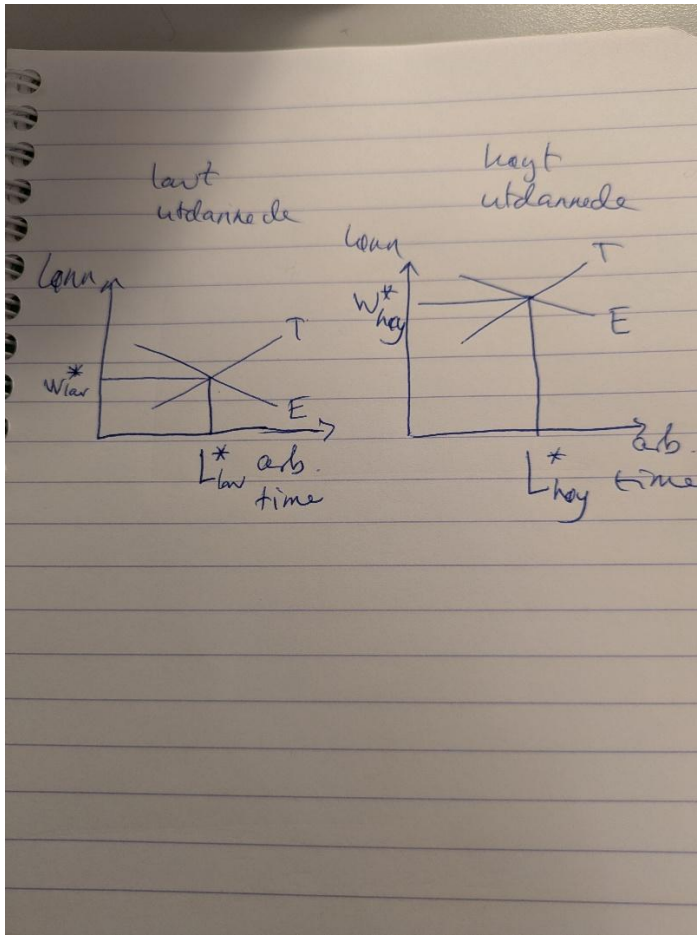 lavt
utdannede
Lønn
T
W*lav
E
L*lav arb.
time
høyt
utdannede
Lønn
T
W*høy
E
arb.
L*høy time